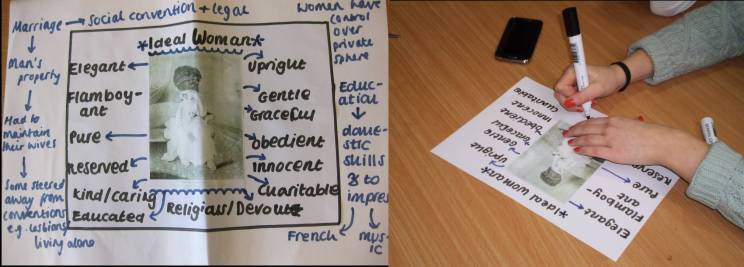 Marriage → Social convention + legal
Man's
property
Had to
maintain
their wives
Some steered
away from
conventions
e.g. lesbians
living alone
Women have
control
over
private
sphere
Educ-
ation
dome-
stic
skills
& to
impress
French
mus-
ic
*Ideal Woman*
Elegant
Flamboy-
ant
Pure
Reserved
Kind/caring
Educated
Religious/Devout
Upright
Gentle
Graceful
obedient
innocent
Charitable
*Ideal Woman*
Elegant
Flamboy-
ant
Pure
Reserve
Upright
Gentle
Graceful
obedient
innocent
Charitable